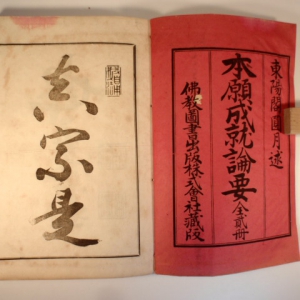 東陽閣圓月述
本願成就論要 全貳冊
佛教圖書出版株式會社藏版
真宗是